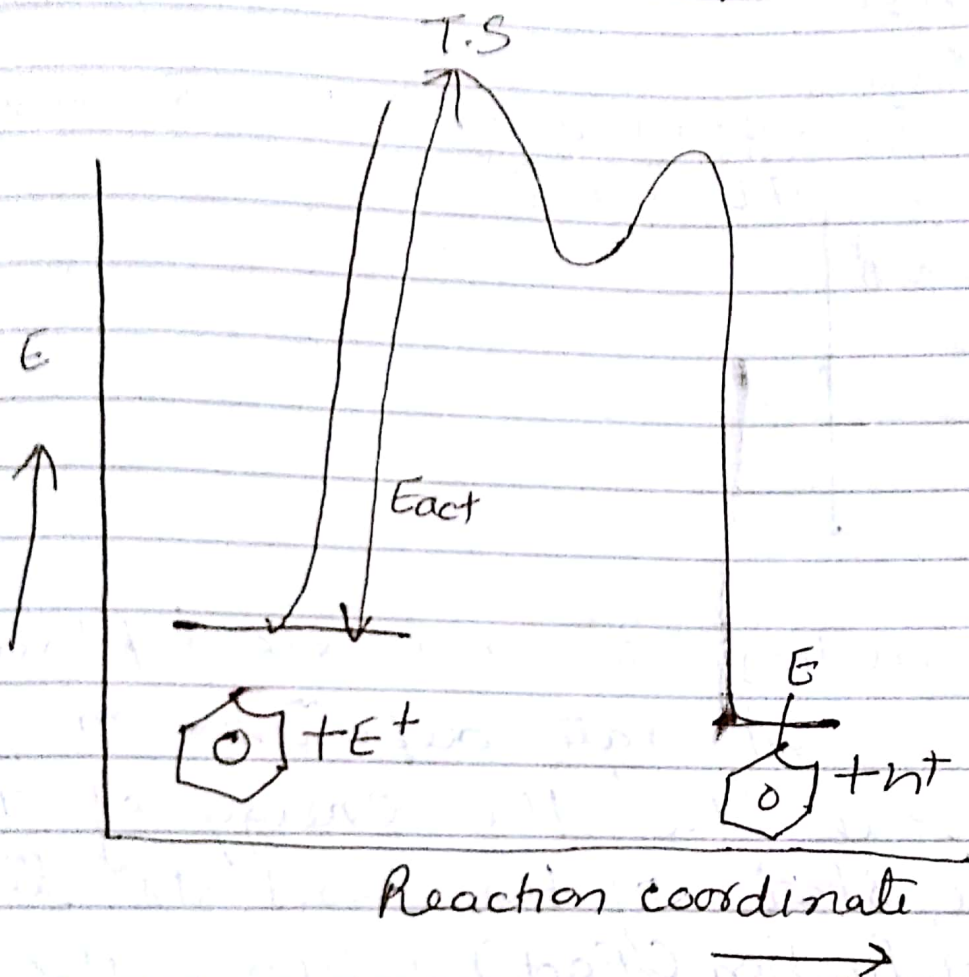 T.S
E
Eact
+E+
E
+n+
Reaction coordinate